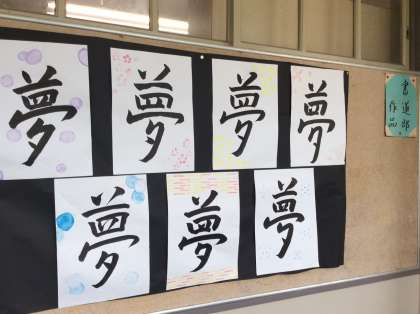 夢
夢
夢
夢
夢
夢
夢
書道部
作品